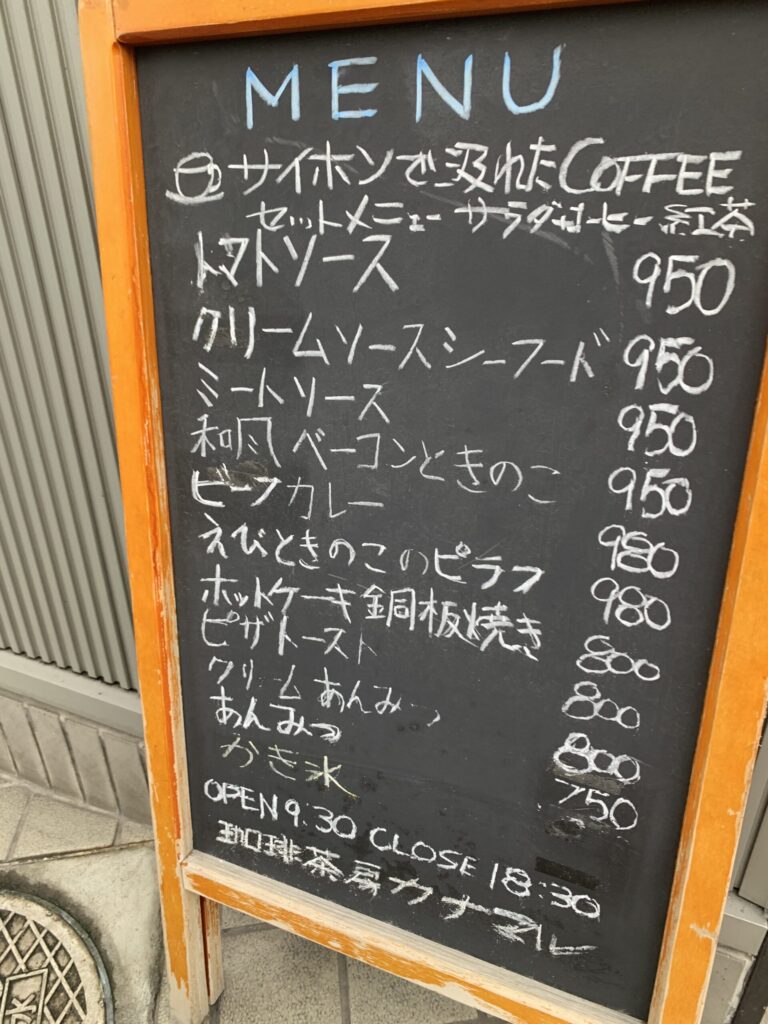 MENU
サイホンで汲れたCOFFEE
セットメニュー サラダ+コーヒー 紅茶
トマトソース 950
クリームソースシーフード 950
ミートソース 950
和風 ベーコンときのこ 950
ビーフカレー 980
えびときのこのピラフ 980
ホットケーキ銅板焼き 800
ピザトースト 800
クリームあんみつ 800
あんみつ 750
かき氷
OPEN 9:30 CLOSE 18:30
珈琲茶房カナマル
水